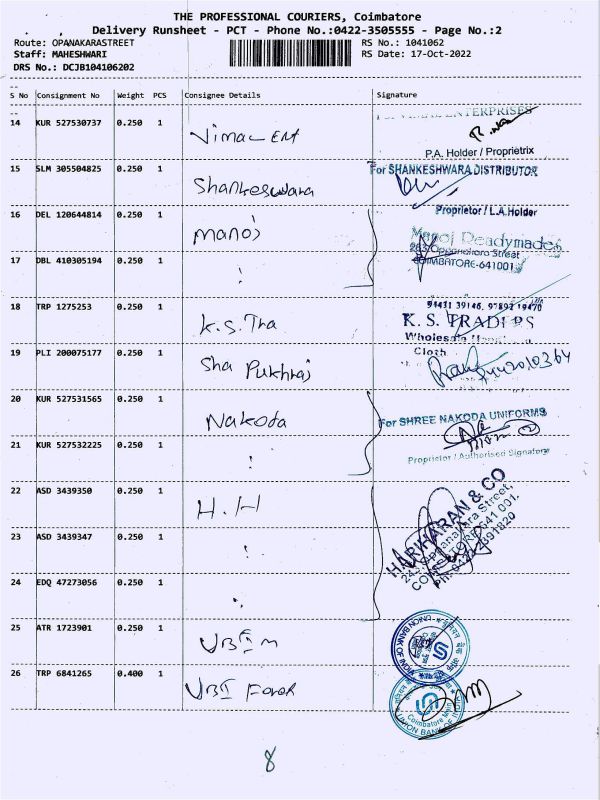 THE PROFESSIONAL COURIERS, Coimbatore
Delivery Runsheet - PCT - Phone No.:0422-3505555 - Page No.:2
Route: OPANAKARASTREET RS No.: 1041062
Staff: MAHESHWARI RS Date: 17-Oct-2022
DRS No.: DCJB104106202
S No Consignment No Weight PCS Consignee Details Signature
14 KUR 527530737 0.250 1 Vimal Ent ENTERPRISES
P.A. Holder / Proprietrix
15 SLM 305504825 0.250 1 Shankeswara For SHANKESHWARA DISTRIBUTOR
Proprietor / L.A.Holder
16 DEL 120644814 0.250 1 Manoj Manoj Readymades
263, Oppanakara Street
COIMBATORE-641001
17 DBL 410305194 0.250 1
18 TRP 1275253 0.250 1 K.S. Tra 94431 39146, 97892 19470
K. S. TRADERS
Wholesale
Cloth
19 PLI 200075177 0.250 1 Sha Pukhraj
20 KUR 527531565 0.250 1 Nakoda For SHREE NAKODA UNIFORMS
21 KUR 527532225 0.250 1 Proprietor / Authorised Signatory
22 ASD 3439350 0.250 1 H.H HARIHARAN & CO
243, Oppanakara Street,
COIMBATORE-641 001.
23 ASD 3439347 0.250 1
24 EDQ 47273056 0.250 1
25 ATR 1723901 0.250 1 UBI M UNION BANK OF INDIA
26 TRP 6841265 0.400 1 UBI Forex Coimbatore Main
UNION BANK OF INDIA
8